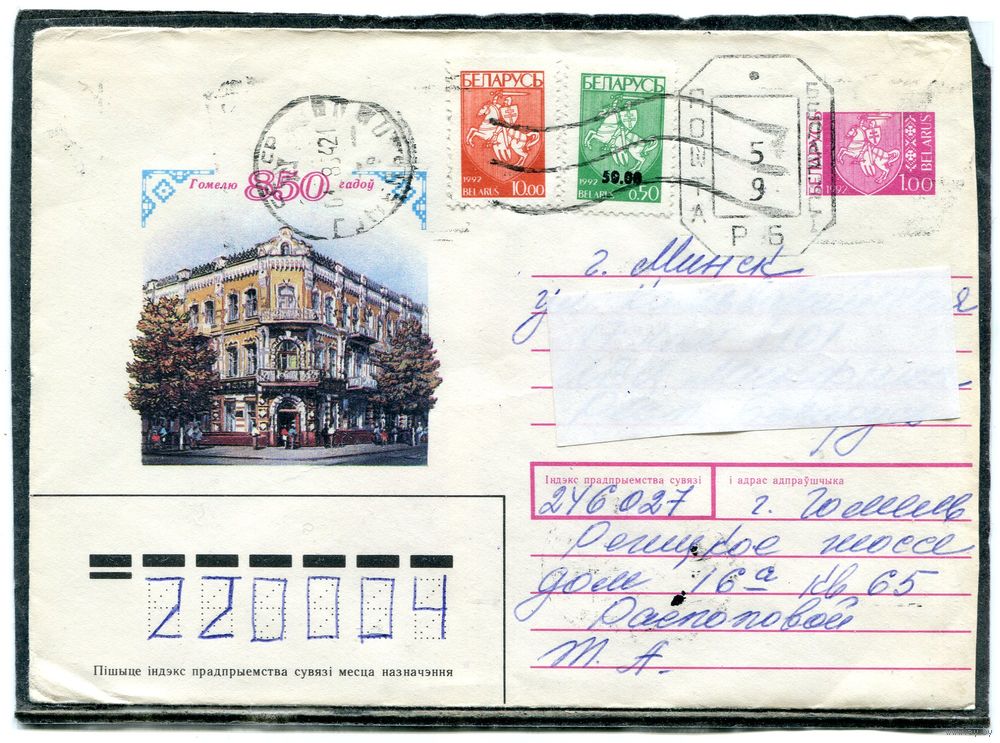 Гомелю 850 гадоў
БЕЛАРУСЬ
1992 10.00
BELARUS
БЕЛАРУСЬ
50.00
1992
BELARUS 0.50
ПОШТА
5
9
РБ
БЕЛАРУСЬ
1992 1.00
BELARUS
г. Минск
Індэкс прадпрыемства сувязі і адрас адпраўшчыка
246027 г. Гомель
Речицкое шоссе
дом 16а кв 65
Распоповой
Т. А.
220004
Пішыце індэкс прадпрыемства сувязі месца назначэння